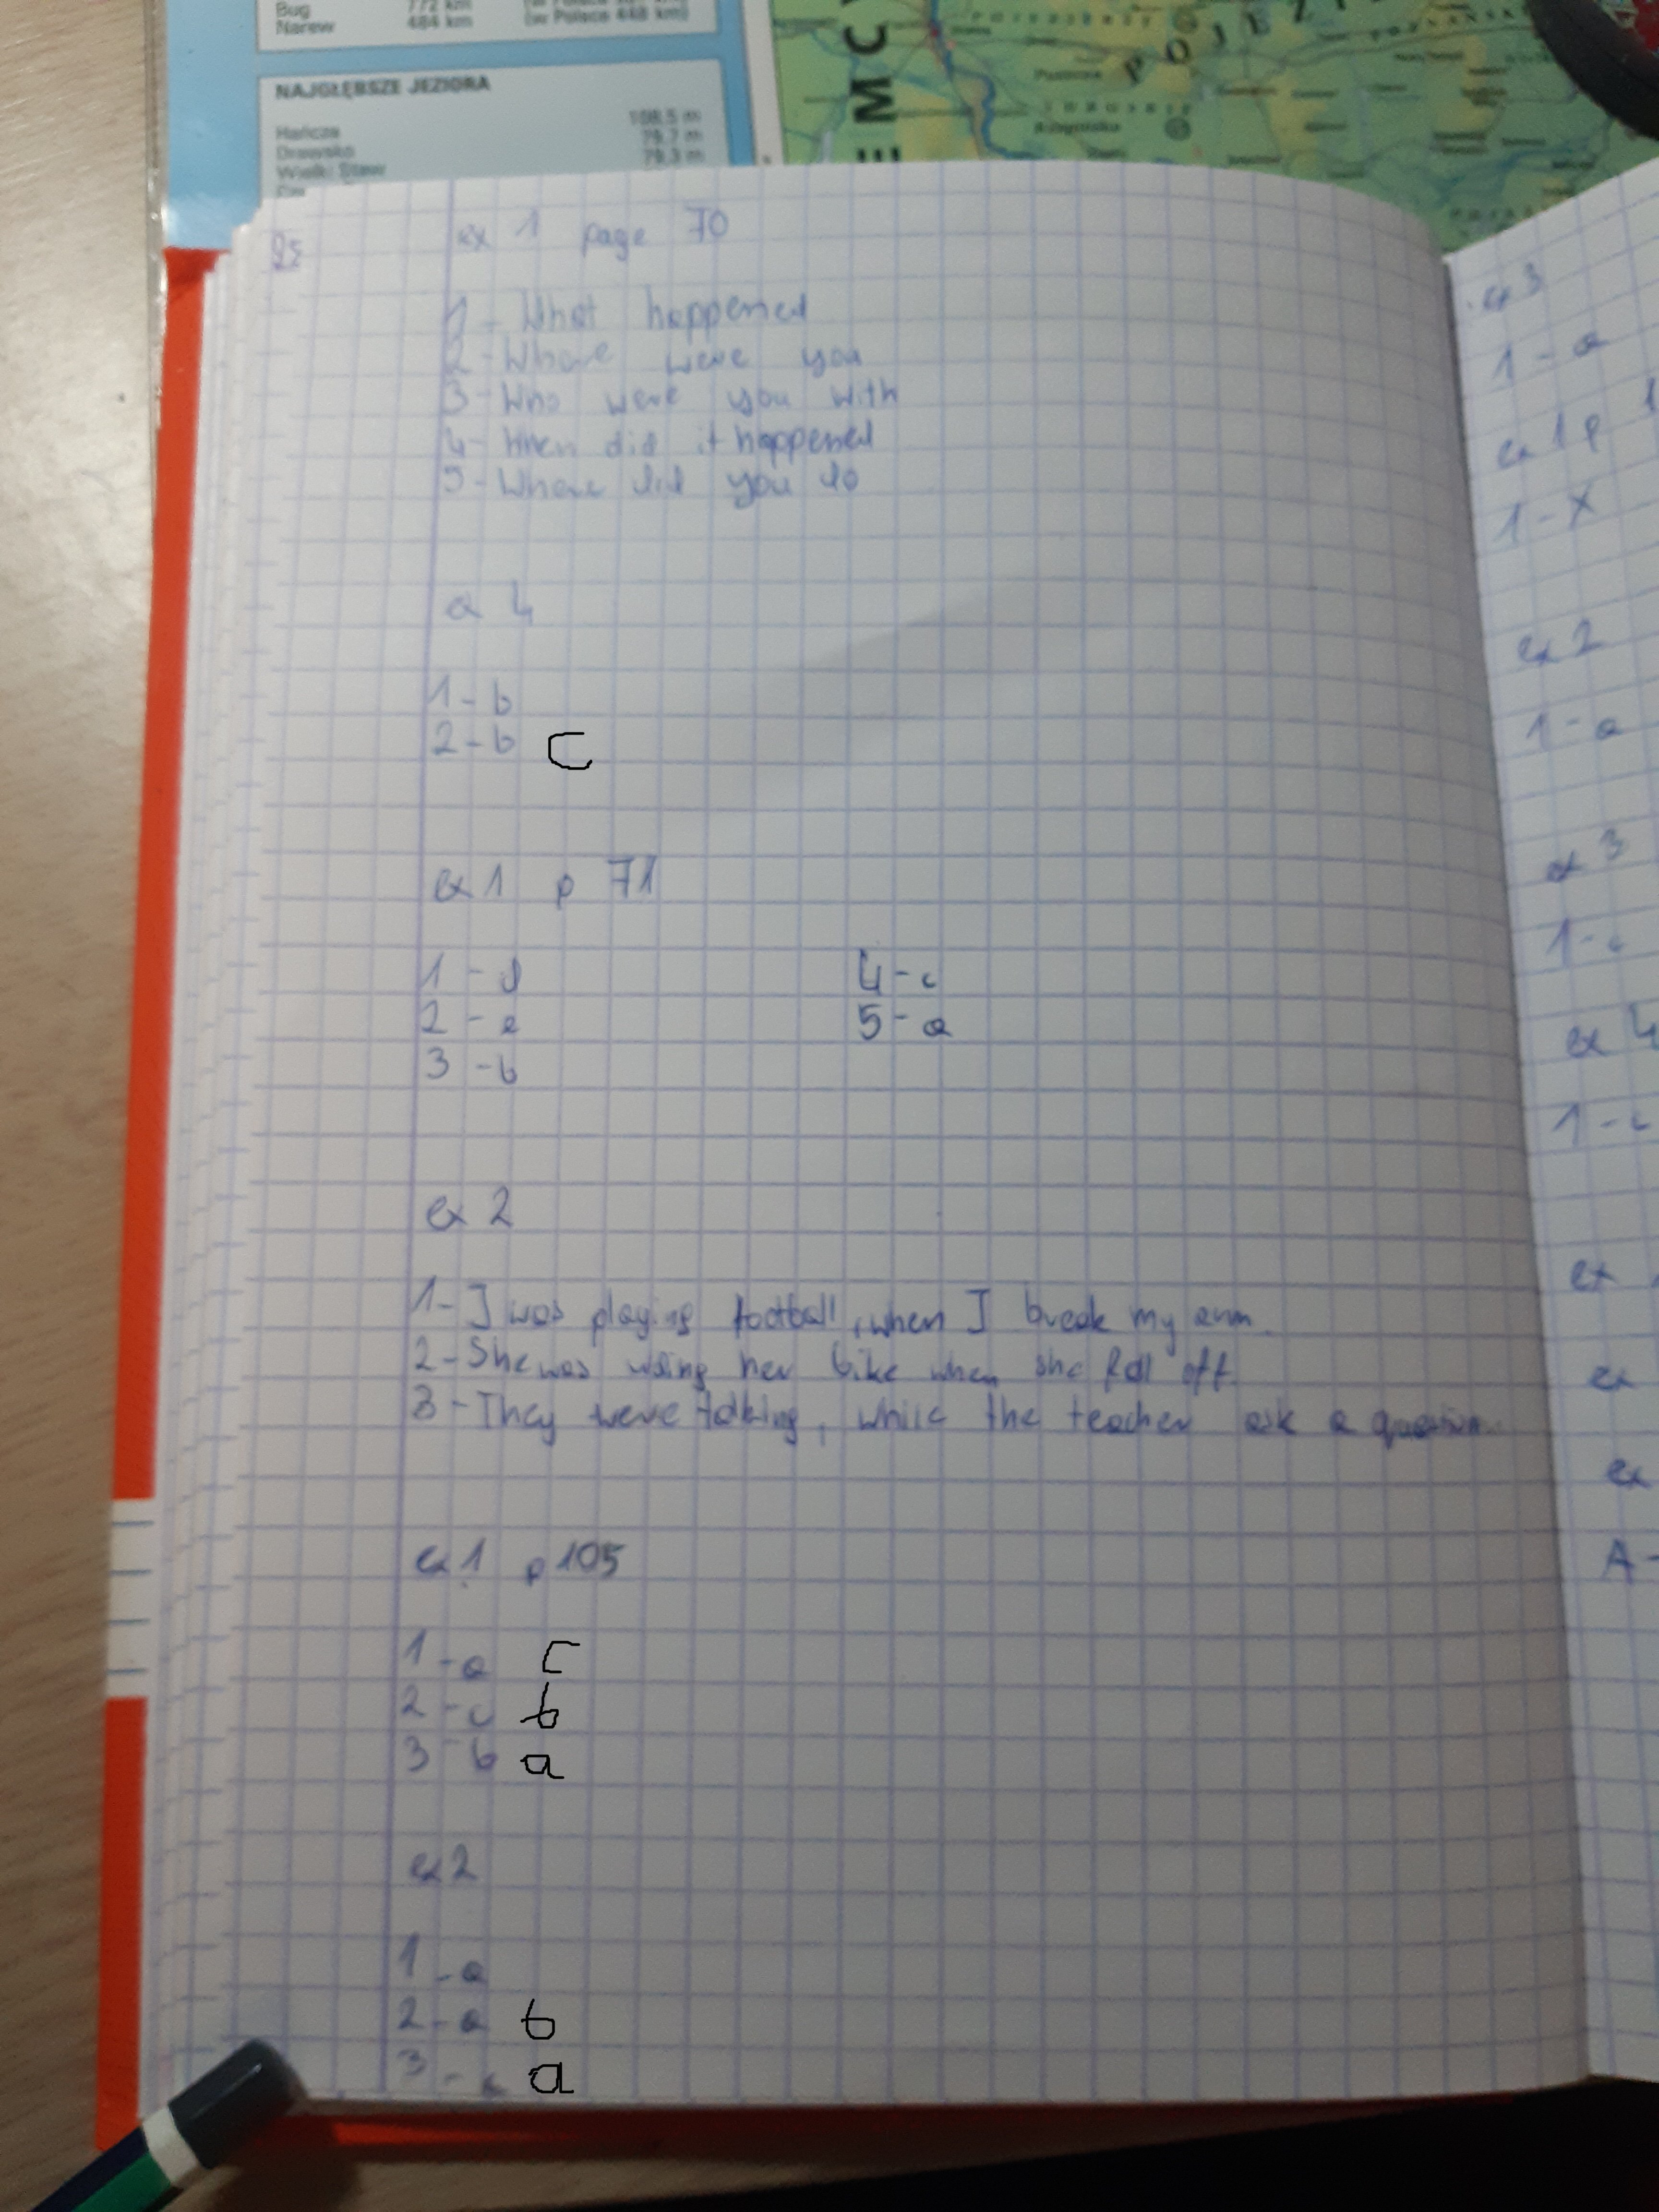 Bug 772 km
Narew 484 km (w Polsce 448 km)
NAJGŁĘBSZE JEZIORA
Hańcza 108,5 m
Drawsko 79,7 m
Wielki Staw 79,3 m
E M C
P O J E Z I
ex 1 page 70
1 - What happened
2 - Where were you
3 - Who were you with
4 - When did it happened
5 - Where did you do
ex 4
1 - b
2 - b C
ex 1 p 71
1 - d
2 - e
3 - b
4 - c
5 - a
ex 2
1 - I was playing football, when I break my arm.
2 - She was riding her bike when she fall off.
3 - They were talking, while the teacher ask a question.
ex 1 p 105
1 - a C
2 - c b
3 - b a
ex 2
1 - a
2 - a b
3 - c a
ex 3
1 - a
ex 1 p 1
1 - X
ex 2
1 - a
ex 3
1 - c
ex 4
1 - c
ex
ex
ex
A -